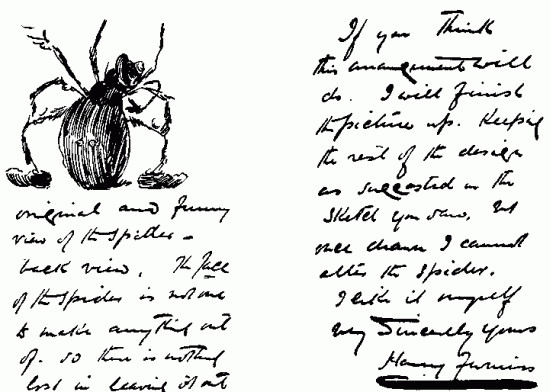 original and funny
view of the Spider –
back view. The Face
of the Spider is not one
to make anything out
of. So there is nothing
lost in leaving it out
If you Think
this arrangement will
do. I will finish
the picture up. Keeping
the rest of the design
as suggested in the
Sketch you saw, but
once drawn I cannot
alter the Spider.
I like it myself
Very Sincerely yours
Harry Furniss